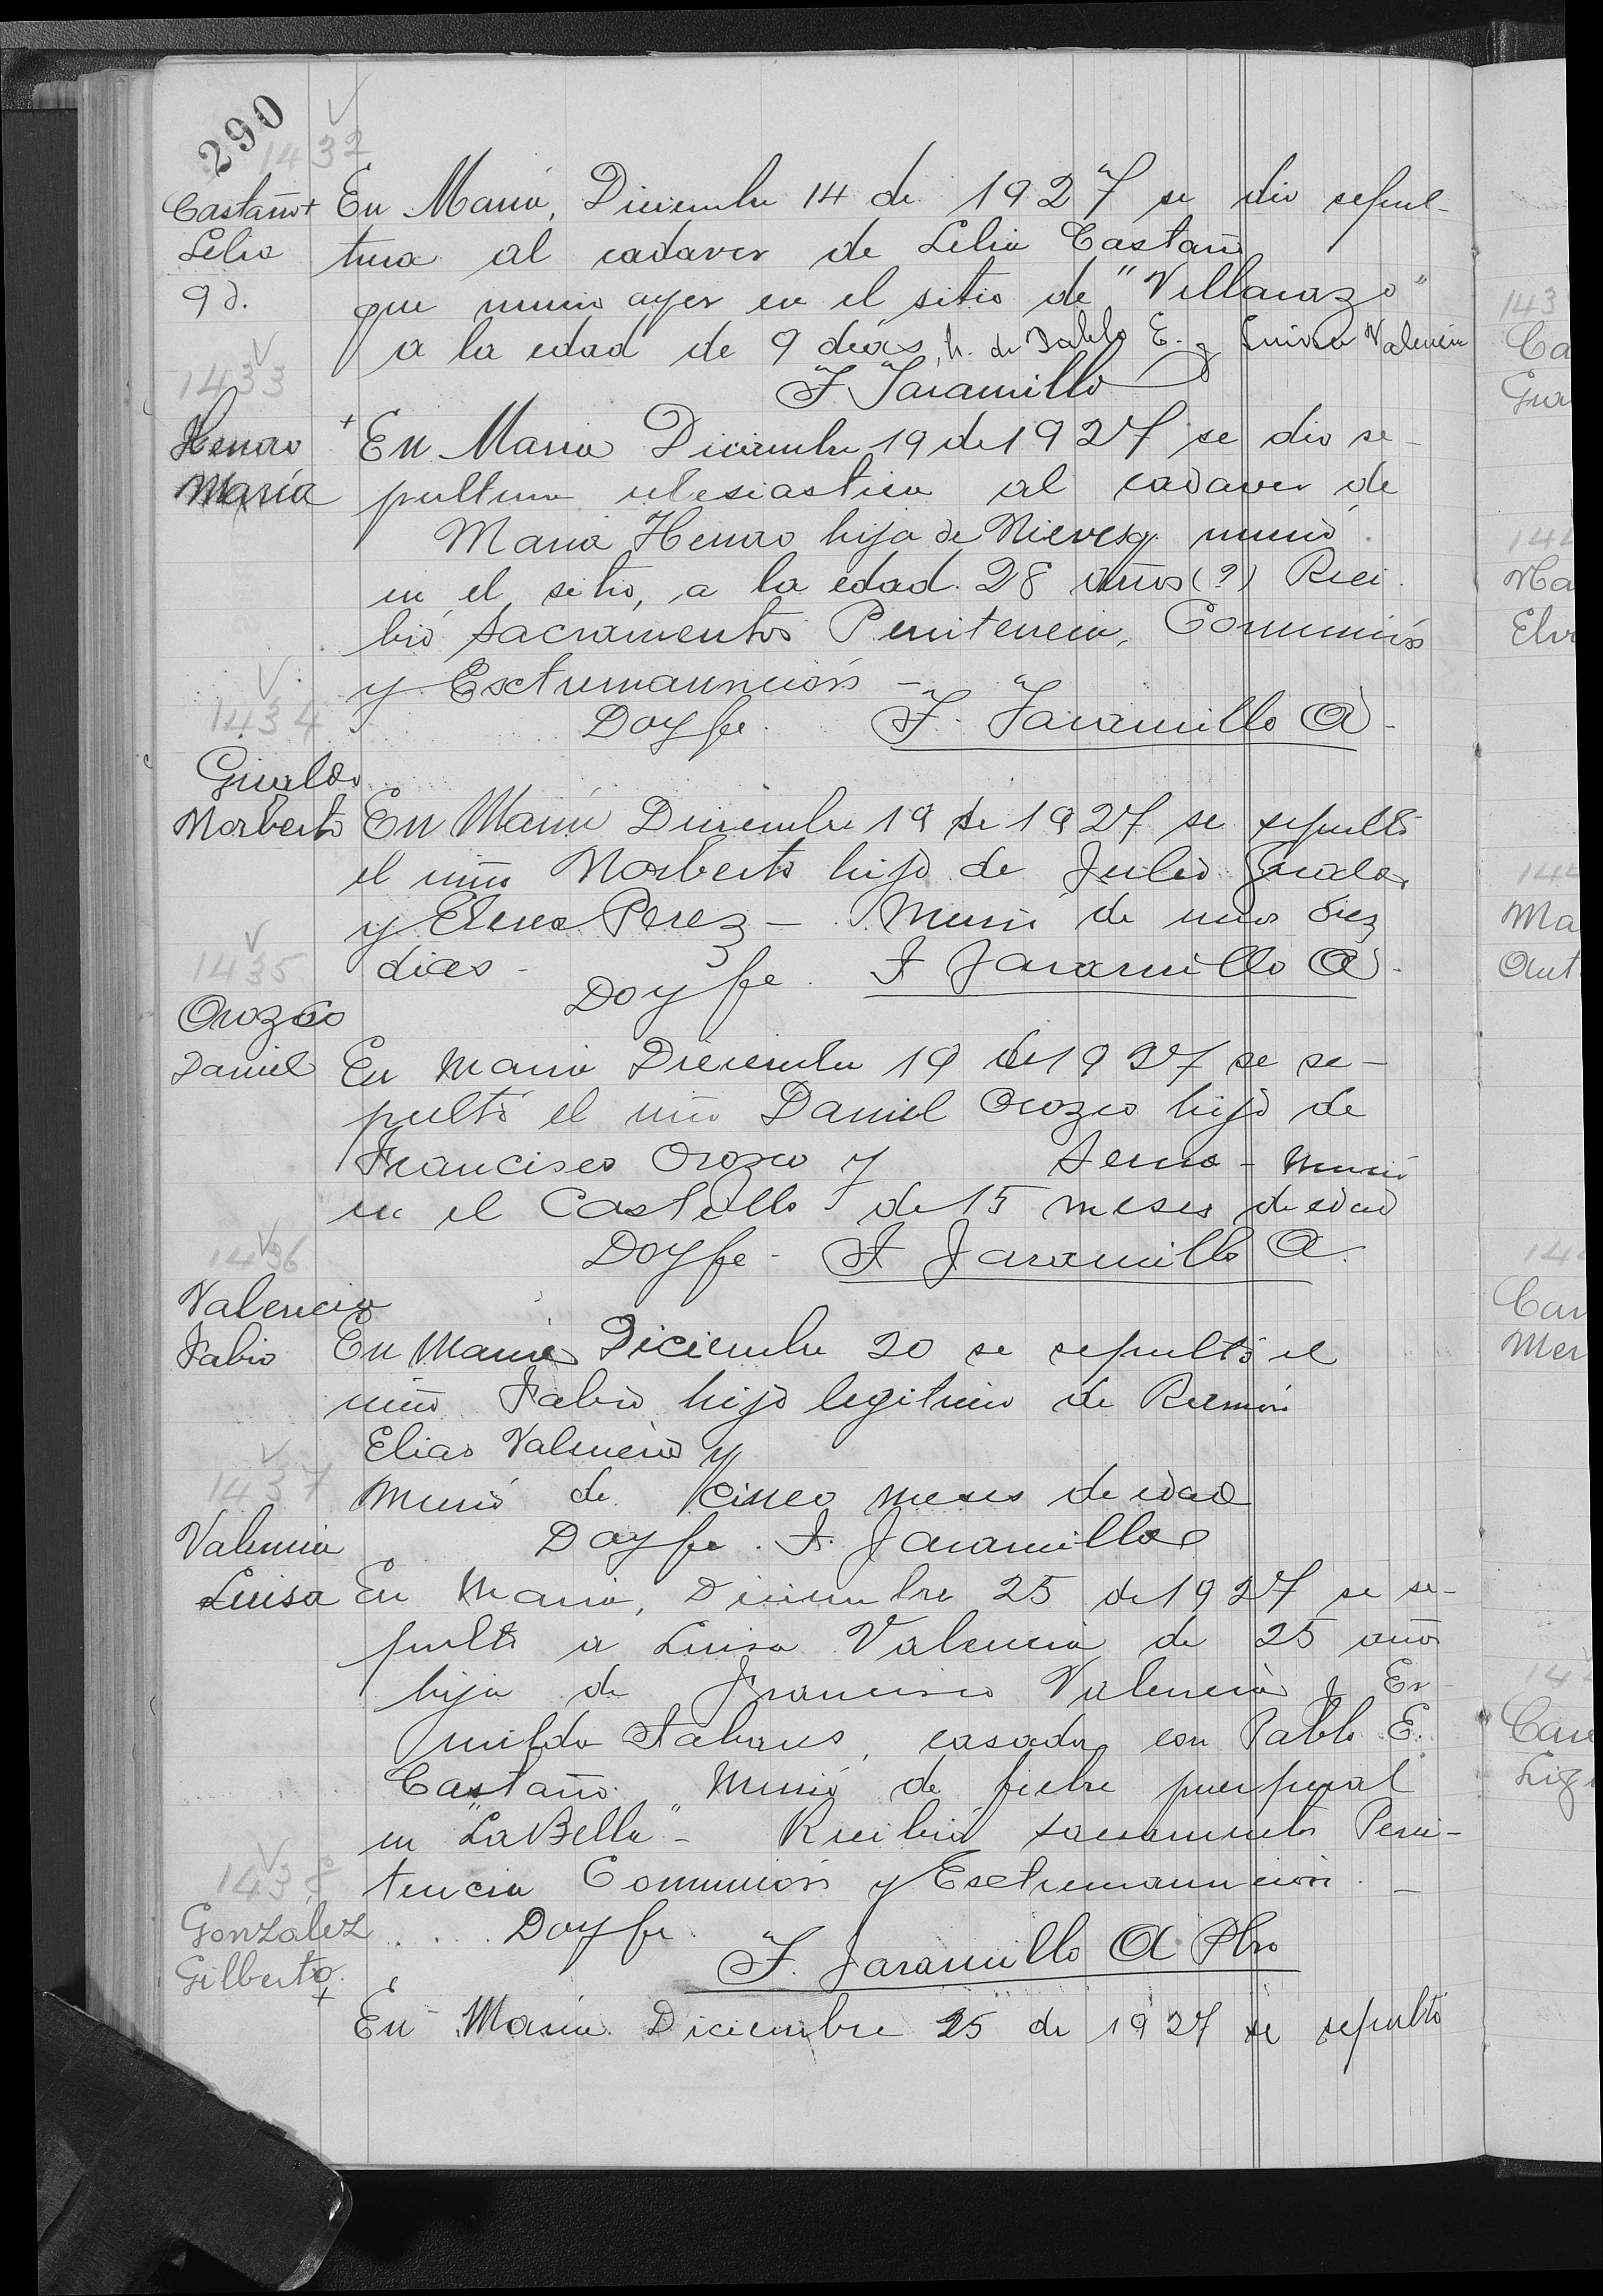 290
1432
Castaño + En María, Diciembre 14 de 1927 se dio sepul-
Lelia tura al cadaver de Lelia Castaño
9 d. que murio ayer en el sitio de "Villarazo"
a la edad de 9 días, h. de Pablo E. y Luisa Valencia
F. Jaramillo
1433
Henao + En Maria Diciembre 19 de 1927 se dio se-
María pultura eclesiastica al cadaver de
Maria Henao hija de Nieves q. murió
en el sitio, a la edad 28 años (?) Reci
bió sacramentos Penitencia, Comunión
y Extremaunción -
1434
Doy fe. F. Jaramillo A -
Giraldo
Norberto En María Diciembre 19 de 1927 se sepultó
el niño Norberto hijo de Julio Giraldo
y Elena Perez - Murió de unos diez
1435
dias - Doy fe. F Jaramillo A -
Orozco
Daniel En Maria Diciembre 19 de 1927 se se-
pultó el niño Daniel Orozco hijo de
Francisco Orozco y Serna - murió
en el Castillo de 15 meses de edad
1436
Doy fe - F Jaramillo A.
Valencia
Fabio En Maria Diciembre 20 se sepultó el
niño Fabio hijo legitimo de Ramón
Elias Valencia y
1437
murió de cinco meses de edad
Valencia Doy fe. F. Jaramillo
Luisa En Maria, Diciembre 25 de 1927 se se-
pultó a Luisa Valencia de 25 años
hija de Francisco Valencia y Er
milda Tabares, casada con Pablo E.
Castaño. Murió de fiebre puerperal
en "La Bella" - Recibió sacramentos Peni-
1438
tencia Comunión y Extremaunción. -
González Doy fe.
F. Jaramillo A Pbro
Gilberto. +
En María Diciembre 25 de 1927 se sepultó
143
Ca
Gra
144
Ma
Elv
144
Ma
Ant
144
Car
Mer
14
Cas
Lig